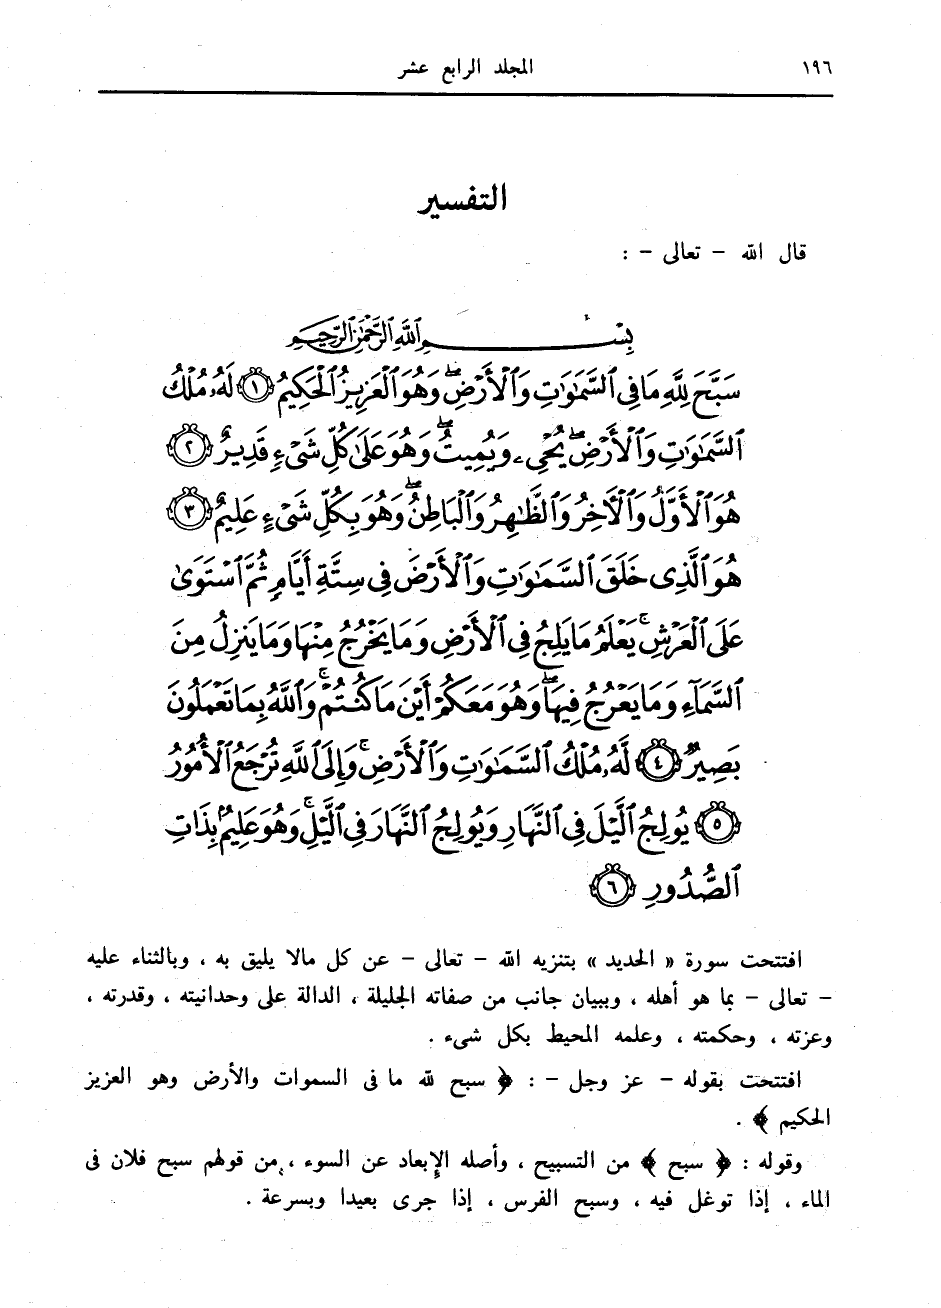 ١٩٦ المجلد الرابع عشر
التفسير
قال الله – تعالى – :
بِسْمِ ٱللَّهِ ٱلرَّحْمَٰنِ ٱلرَّحِيمِ
سَبَّحَ لِلَّهِ مَا فِى ٱلسَّمَٰوَٰتِ وَٱلْأَرْضِۖ وَهُوَ ٱلْعَزِيزُ ٱلْحَكِيمُ ﴿١﴾ لَهُۥ مُلْكُ
ٱلسَّمَٰوَٰتِ وَٱلْأَرْضِۖ يُحْىِۦ وَيُمِيتُۖ وَهُوَ عَلَىٰ كُلِّ شَىْءٍ قَدِيرٌ ﴿٢﴾
هُوَ ٱلْأَوَّلُ وَٱلْءَاخِرُ وَٱلظَّٰهِرُ وَٱلْبَاطِنُۖ وَهُوَ بِكُلِّ شَىْءٍ عَلِيمٌ ﴿٣﴾
هُوَ ٱلَّذِى خَلَقَ ٱلسَّمَٰوَٰتِ وَٱلْأَرْضَ فِى سِتَّةِ أَيَّامٍ ثُمَّ ٱسْتَوَىٰ
عَلَى ٱلْعَرْشِۚ يَعْلَمُ مَا يَلِجُ فِى ٱلْأَرْضِ وَمَا يَخْرُجُ مِنْهَا وَمَا يَنزِلُ مِنَ
ٱلسَّمَآءِ وَمَا يَعْرُجُ فِيهَاۖ وَهُوَ مَعَكُمْ أَيْنَ مَا كُنتُمْۚ وَٱللَّهُ بِمَا تَعْمَلُونَ
بَصِيرٌ ﴿٤﴾ لَّهُۥ مُلْكُ ٱلسَّمَٰوَٰتِ وَٱلْأَرْضِۚ وَإِلَى ٱللَّهِ تُرْجَعُ ٱلْأُمُورُ
﴿٥﴾ يُولِجُ ٱلَّيْلَ فِى ٱلنَّهَارِ وَيُولِجُ ٱلنَّهَارَ فِى ٱلَّيْلِۚ وَهُوَ عَلِيمٌۢ بِذَاتِ
ٱلصُّدُورِ ﴿٦﴾
افتتحت سورة « الحديد » بتنزيه الله – تعالى – عن كل مالا يليق به ، وبالثناء عليه
– تعالى – بما هو أهله ، وببيان جانب من صفاته الجليلة ، الدالة على وحدانيته ، وقدرته ،
وعزته ، وحكمته ، وعلمه المحيط بكل شىء .
افتتحت بقوله – عز وجل – : ﴿ سبح لله ما فى السموات والأرض وهو العزيز
الحكيم ﴾ .
وقوله : ﴿ سبح ﴾ من التسبيح ، وأصله الإبعاد عن السوء ، من قولهم سبح فلان فى
الماء ، إذا توغل فيه ، وسبح الفرس ، إذا جرى بعيدا وبسرعة .